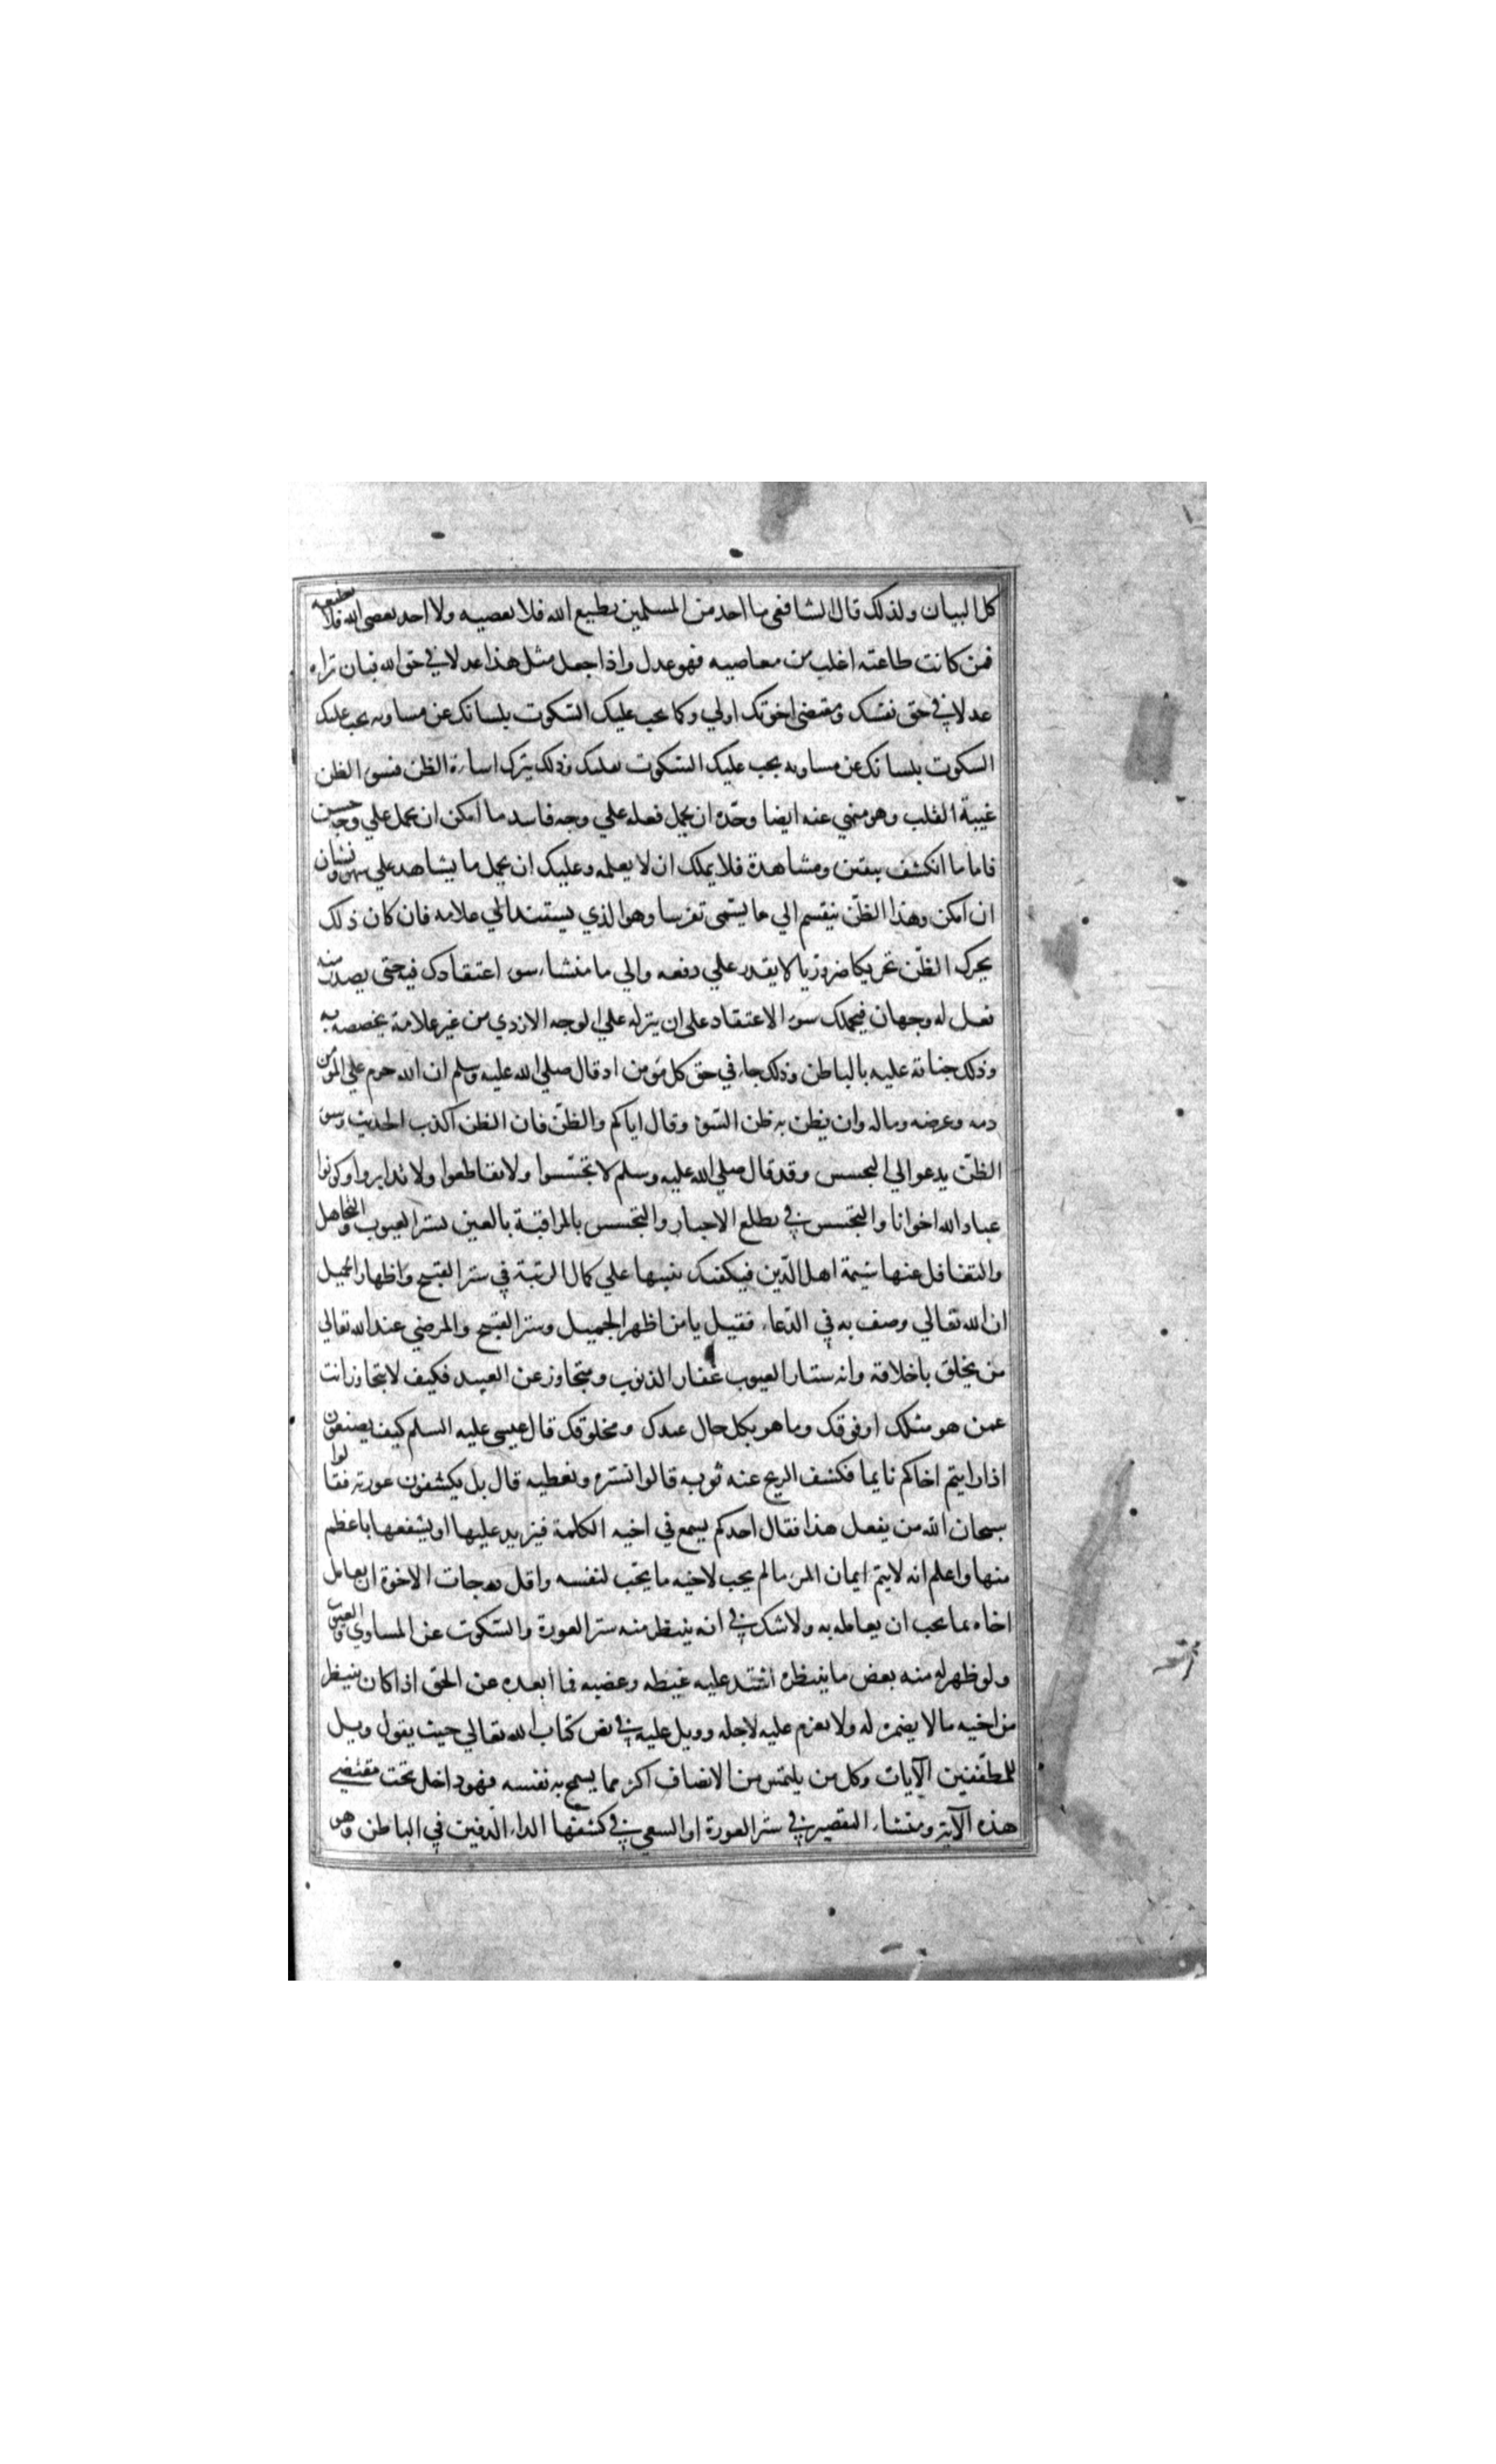 كل البيان ولذلك قال الشافعي ما احد من المسلمين يطيع الله فلا يعصيه ولا احد يعصي الله فلا يطيعه
فمن كانت طاعته اغلب من معاصيه فهو عدل واذا جعل مثل هذا عدلا في حق الله فبان تراه
عدلا في حق نفسك ومقتضي اخوتك اولي وكما يجب عليك السكوت بلسانك عن مساويه يجب عليك
السكوت بلسانك عن مساويه يجب عليك السكوت بقلبك وذلك بترك اساءة الظن فسوء الظن
غيبة القلب وهو منهي عنه ايضا وحدّه ان يحمل فعله علي وجه فاسد ما امكن ان يحمل علي وجه حسن
فاما ما انكشف بيقين ومشاهدة فلا يملك ان لا يعلمه وعليك ان يحمل ما يشاهد علي سهو ونسيان
ان امكن وهذا الظنّ ينقسم الي ما يسمّى تفرسا وهو الذي يستند الي علامه فان كان ذلك
يحرك الظنّ تحريكا ضروريا لا يقدر علي دفعه والي ما منشاءه سوء اعتقادك فيه حتى يصدر منه
فعل له وجهان فيحملك سوء الاعتقاد على ان ينزله علي الوجه الاردي من غير علامة يخصصه به
وذلك جناية عليه بالباطن وذلك جاء في حق كل مؤمن اد قال صلي الله عليه وسلم ان الله حرم علي المؤمن
دمه وعرضه وماله وان يظن به ظن السّوء وقال اياكم والظنّ فان الظن اكذب الحديث وسوء
الظنّ يدعوا الي التجسس وقد قال صلي الله عليه وسلم لا تجسّسوا ولا تقاطعوا ولا تدابروا وكونوا
عباد الله اخوانا والتجسس في تطلع الاخبار والتجسس بالمراقبة بالعين لستر العيوب والتجاهل
والتغافل عنها شيمة اهل الدّين فيكفيك تنبيها علي كمال الرتبة في ستر القبيح واظهار الجميل
ان الله تعالي وصف به في الدّعاء فقيل يا من اظهر الجميل وستر القبيح والمرضي عند الله تعالي
من يخلق باخلاقه وانه ستار العيوب غفار الذنوب ومتجاوز عن العبيد فكيف لا يتجاوز انت
عمن هو مثلك او فوقك وما هو بكل حال عبدك ومخلوقك قال عيسي عليه السلم كيف يصنعون
اذا رايتم اخاكم نايما فكشف الريح عنه ثوبه قالوا نستره ونغطيه قال بل يكشفون عورته فقالوا
سبحان الله من يفعل هذا فقال احدكم يسمع في اخيه الكلمة فيزيد عليها او يشفعها باعظم
منها واعلم انه لا يتم ايمان المرء ما لم يحب لاخيه ما يحّب لنفسه واقل درجات الاخوة ان يعامل
اخاه بما يحب ان يعامله به ولا شك في انه ينتظر منه ستر العورة والسّكوت عن المساوي والعيوب
ولو ظهر له منه بعض ما ينتظره اشتد عليه غيظه وغضبه فما ابعده عن الحق اذا كان ينتظر
من اخيه ما لا يضمره له ولا يعزم عليه لاجله وويل عليه في نص كتاب الله تعالي حيث يقول ويل
للمطففين الآيات وكل من يلتمس من الانصاف اكثر مما يسمح به نفسه فهو داخل تحت مقتضي
هذه الآية ومنشاء التقصير في ستر العورة او السعي في كشفها الداء الدفين في الباطن وهو